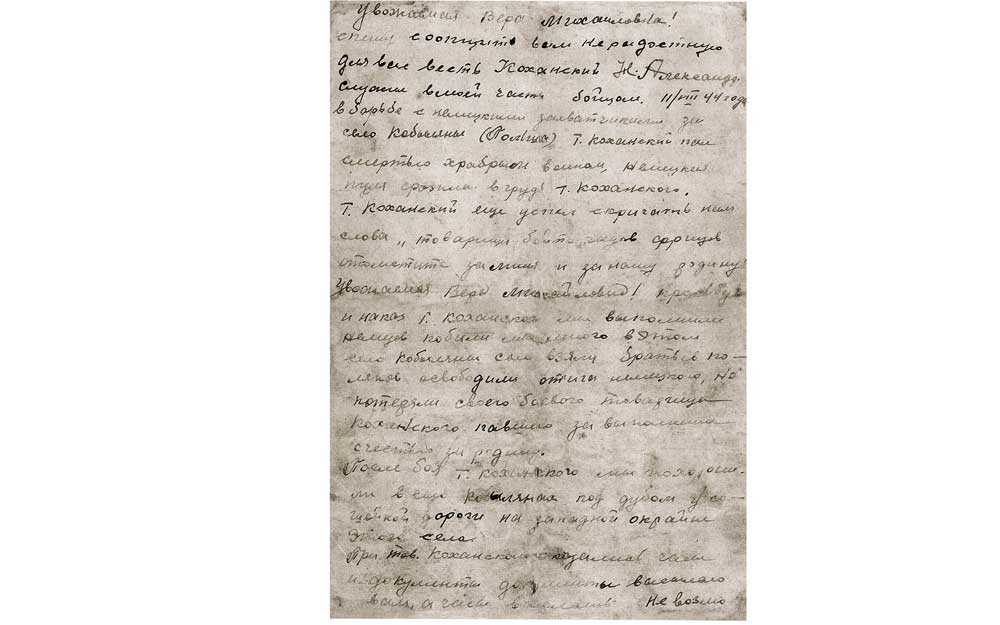 Уважаемая Вера Михайловна!
спешу сообщить вам нерадостную
для вас весть Коханский Н. Александр.
служил в моей части бойцом. 11/VIII 44 года
в борьбе с немецкими захватчиками за
село Кобыляны (Польша) Т. Коханский пал
смертью храбрых воином, немецкая
пуля сразила в грудь Т. Коханского.
Т. Коханский еще успел скричать нам
слова „товарищи фрицов
отомстите за меня и за нашу родину!
Уважаемая Вера Михайловна!
и наказ Т. Коханского мы выполнили
немцев побили мы много в этом
село Кобыляны село взяли братьев по-
ляков освободили от ига немецкого, но
потеряли своего боевого товарища
Коханского павшего за
счастье за родину.
После боя Т. Коханского мы похорони-
ли в селе Кобылянах под дубом у
дороги на западной окраине
этого села.
При тов. Коханском оказались часы
и документы документы высылаю
вам, а часы выслать не возмо